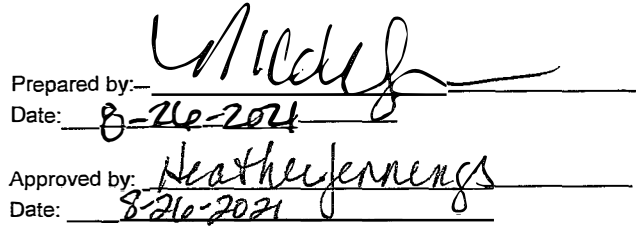 Prepared by:
Date: 8-26-2021
Approved by: Heather Jennings
Date: 8-26-2021